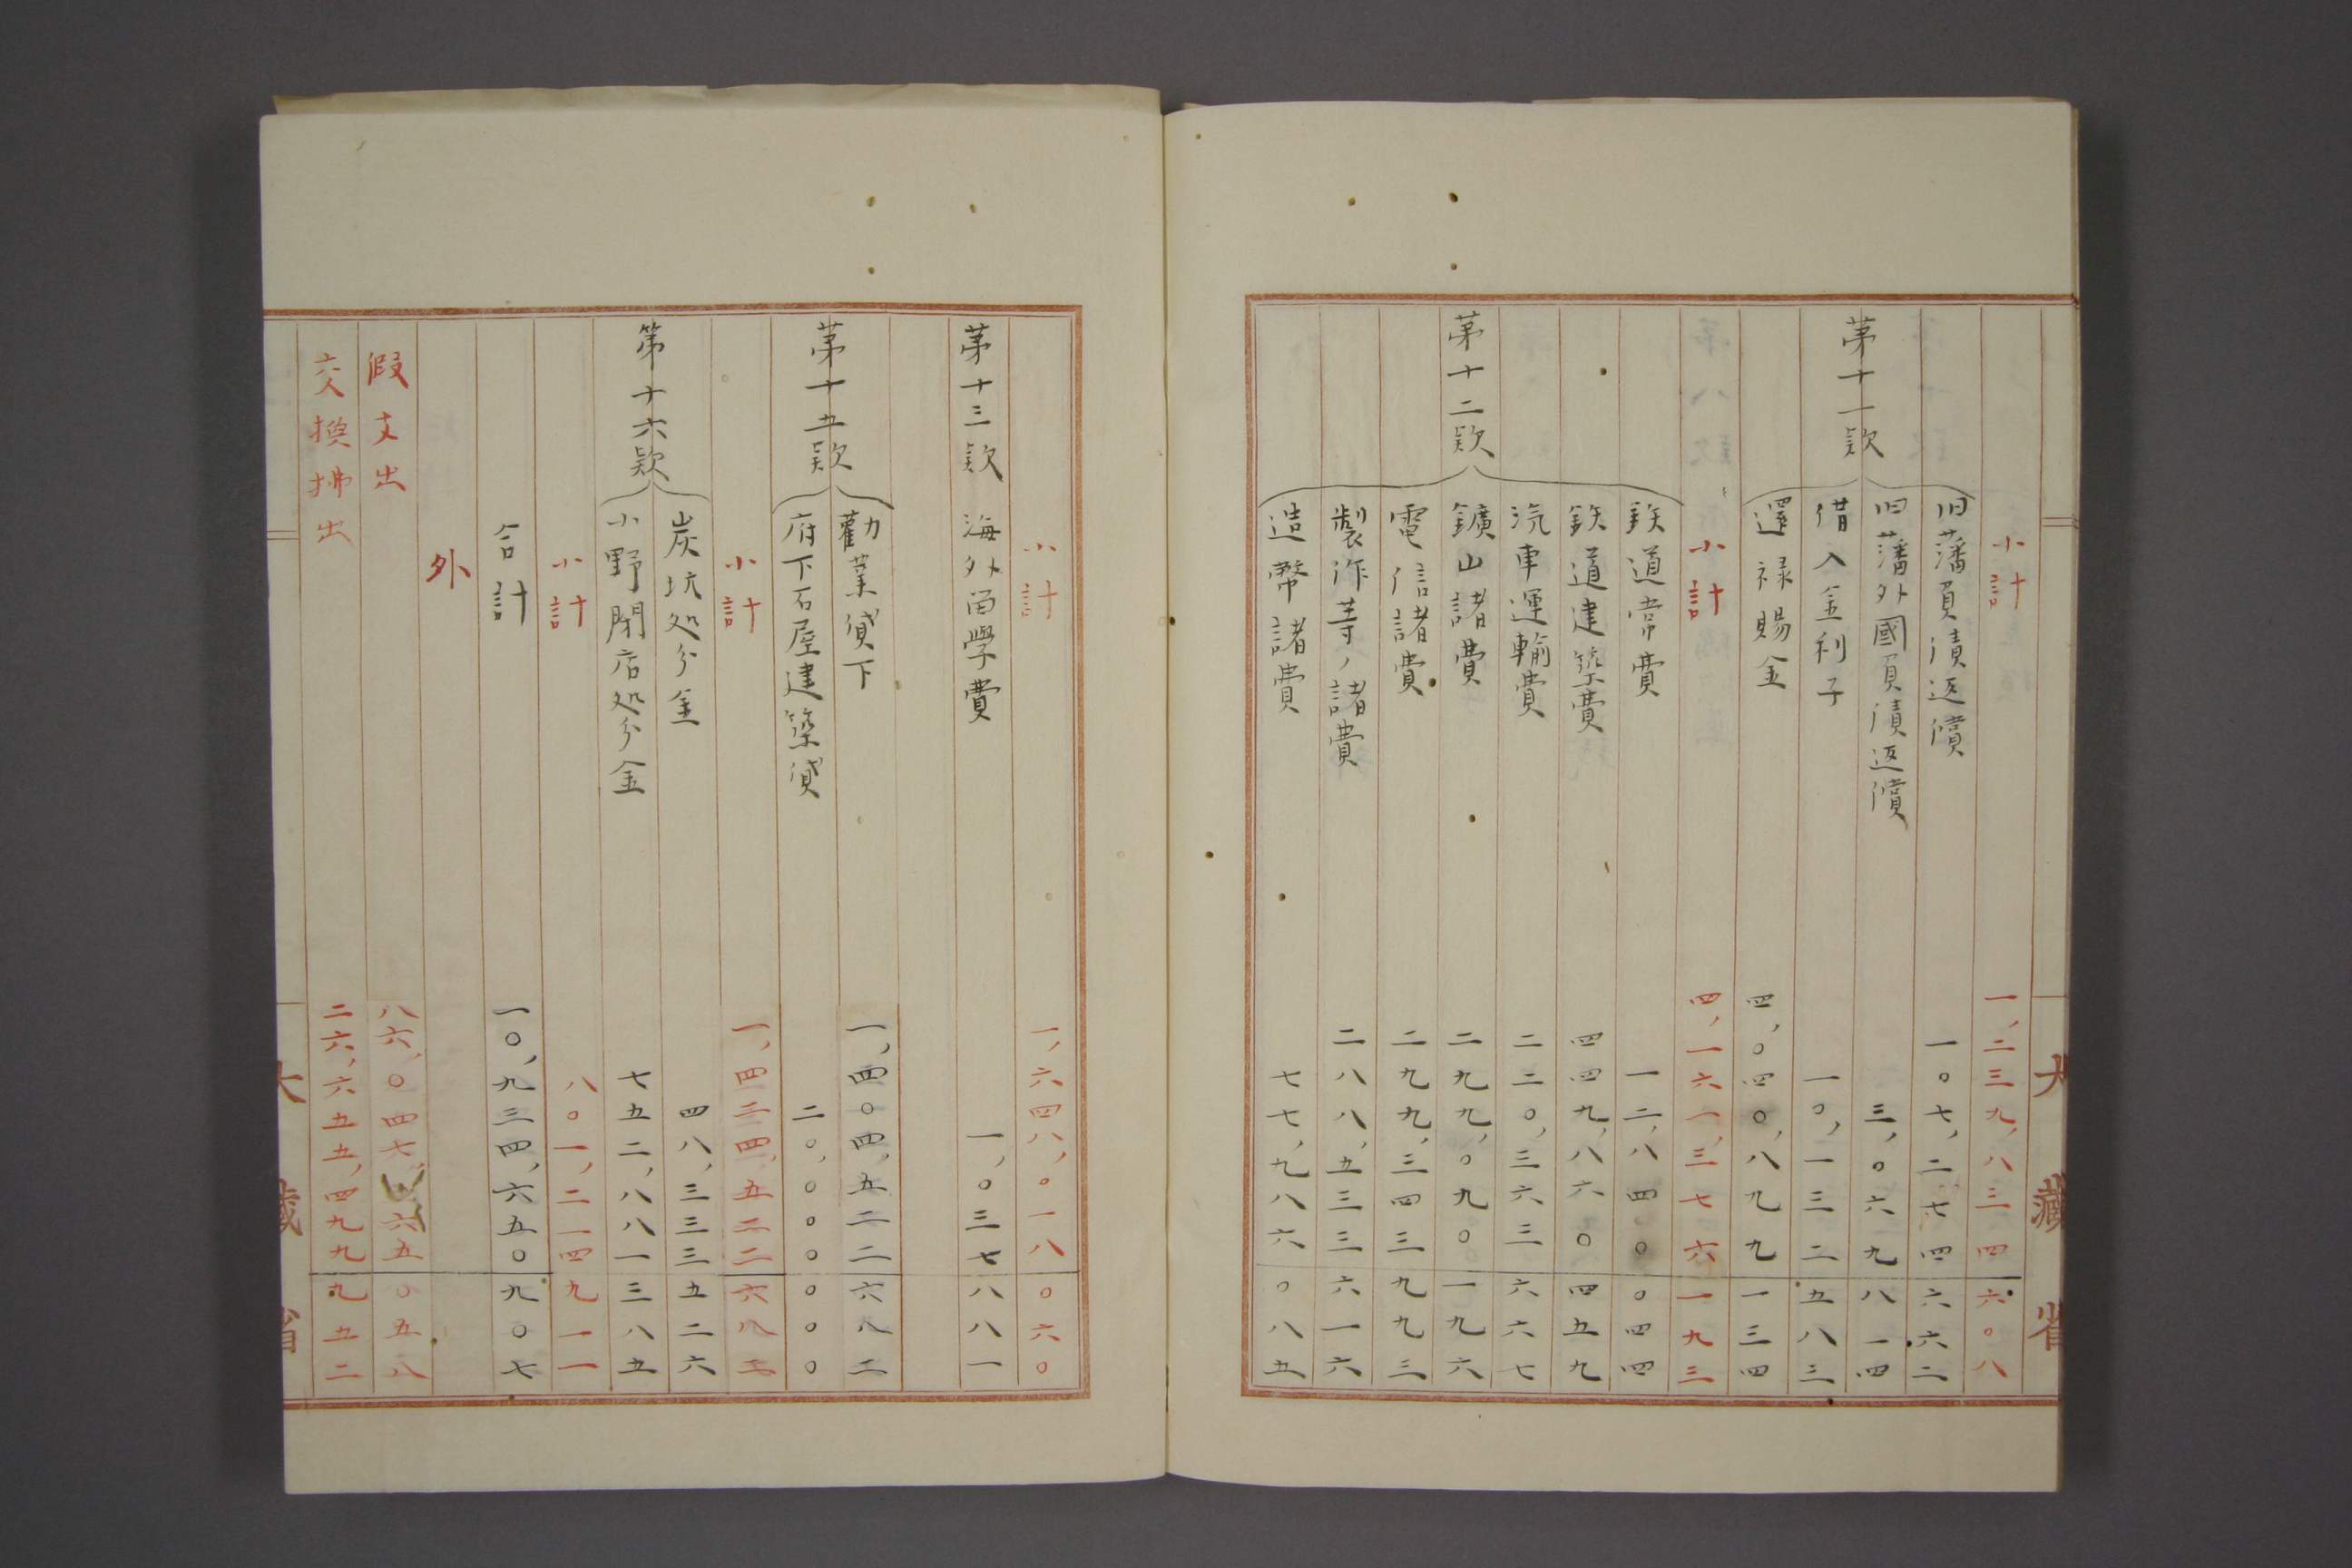 小計 一,二三九,八三四 六〇八
第十一款
旧藩負債返償 一〇七,二七四 六六二
旧藩外國負債返償 三,〇六九 八一四
借入金利子 一〇,一三二 五八三
還禄賜金 四,〇四〇,八九九 一三四
小計 四,一六一,三七六 一九三
第十二款
鉄道常費 一二,八四〇 〇四四
鉄道建築費 四四九,八六〇 四五九
汽車運輸費 二二〇,三六三 六六七
鑛山諸費 二九九,〇九〇 一九六
電信諸費 二九九,三四三 九九三
製作等ノ諸費 二八八,五三三 六一六
造幣諸費 七七,九八六 〇八五
大藏省
小計 一,六四八,〇一八 〇六〇
第十三款 海外留學費 一,〇三七 八八一
第十五款
勸業貸下 一,四〇四,五二二 六八二
府下石屋建築貸 二〇,〇〇〇 〇〇〇
小計 一,四二四,五二二 六八二
第十六款
炭坑処分金 四八,三三三 五二六
小野閉店処分金 七五二,八八一 三八五
小計 八〇一,二一四 九一一
合計 一〇,九三四,六五〇 九〇七
外
假支出 八六,〇四七, 六五 〇五八
交換拂出 二六,六五五,四九九 九五二
大藏省